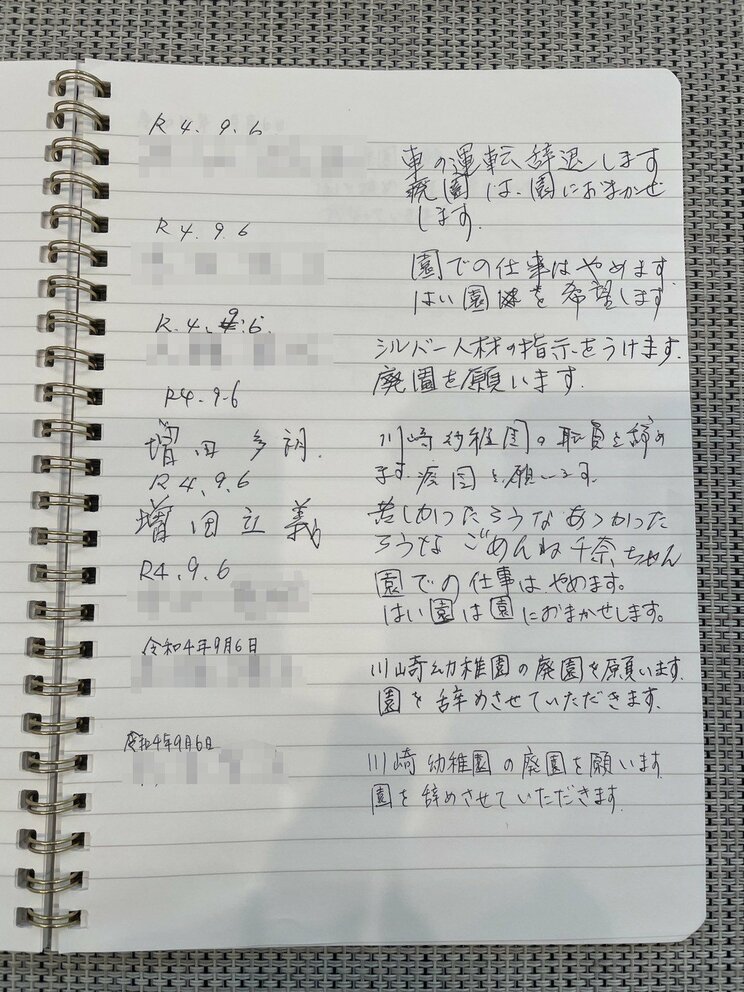 R4.9.6
車の運転辞退します
廃園は、園におまかせ
します.
R4.9.6
園での仕事はやめます
はい園を希望します
R.4.9.6.
シルバー人材の指示をうけます.
廃園を願います.
R4.9.6
増田多朗.
川崎幼稚園の職員を辞め
ます.廃园を願います.
R4.9.6
増田立義
苦しかったろうなあつかった
ろうなごめんね千奈ちゃん
R4.9.6
園での仕事はやめます。
はい園は園におまかせします。
令和4年9月6日
川崎幼稚園の廃園を願います.
園を辞めさせていただきます.
令和4年9月6日
川崎幼稚園の廃園を願います
園を辞めさせていただきます.